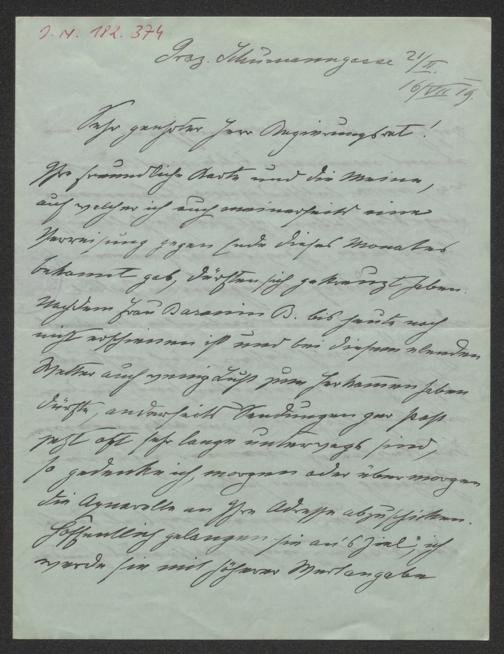 J. N. 182.374
Graz. Schumanngasse 21/II.
16/VII 19.
Sehr geehrter Herr Regierungsrat!
Ihre freundliche Karte und die Meine,
auf welcher ich auch meinerseits eine
Verreisung gegen Ende dieses Monates
bekannt gab, dürften sich gekreuzt haben.
Nachdem Frau Baronin B. bis heute noch
nicht erschienen ist und bei diesem elenden
Wetter auch wenig Lust zum Herkommen haben
dürfte, anderseits Sendungen per Post
jetzt oft sehr lange unterwegs sind,
so gedenke ich, morgen oder übermorgen
die Aquarelle an Ihre Adresse abzuschicken.
Hoffentlich gelangen sie an's Ziel; ich
werde sie mit höherer Wertangabe